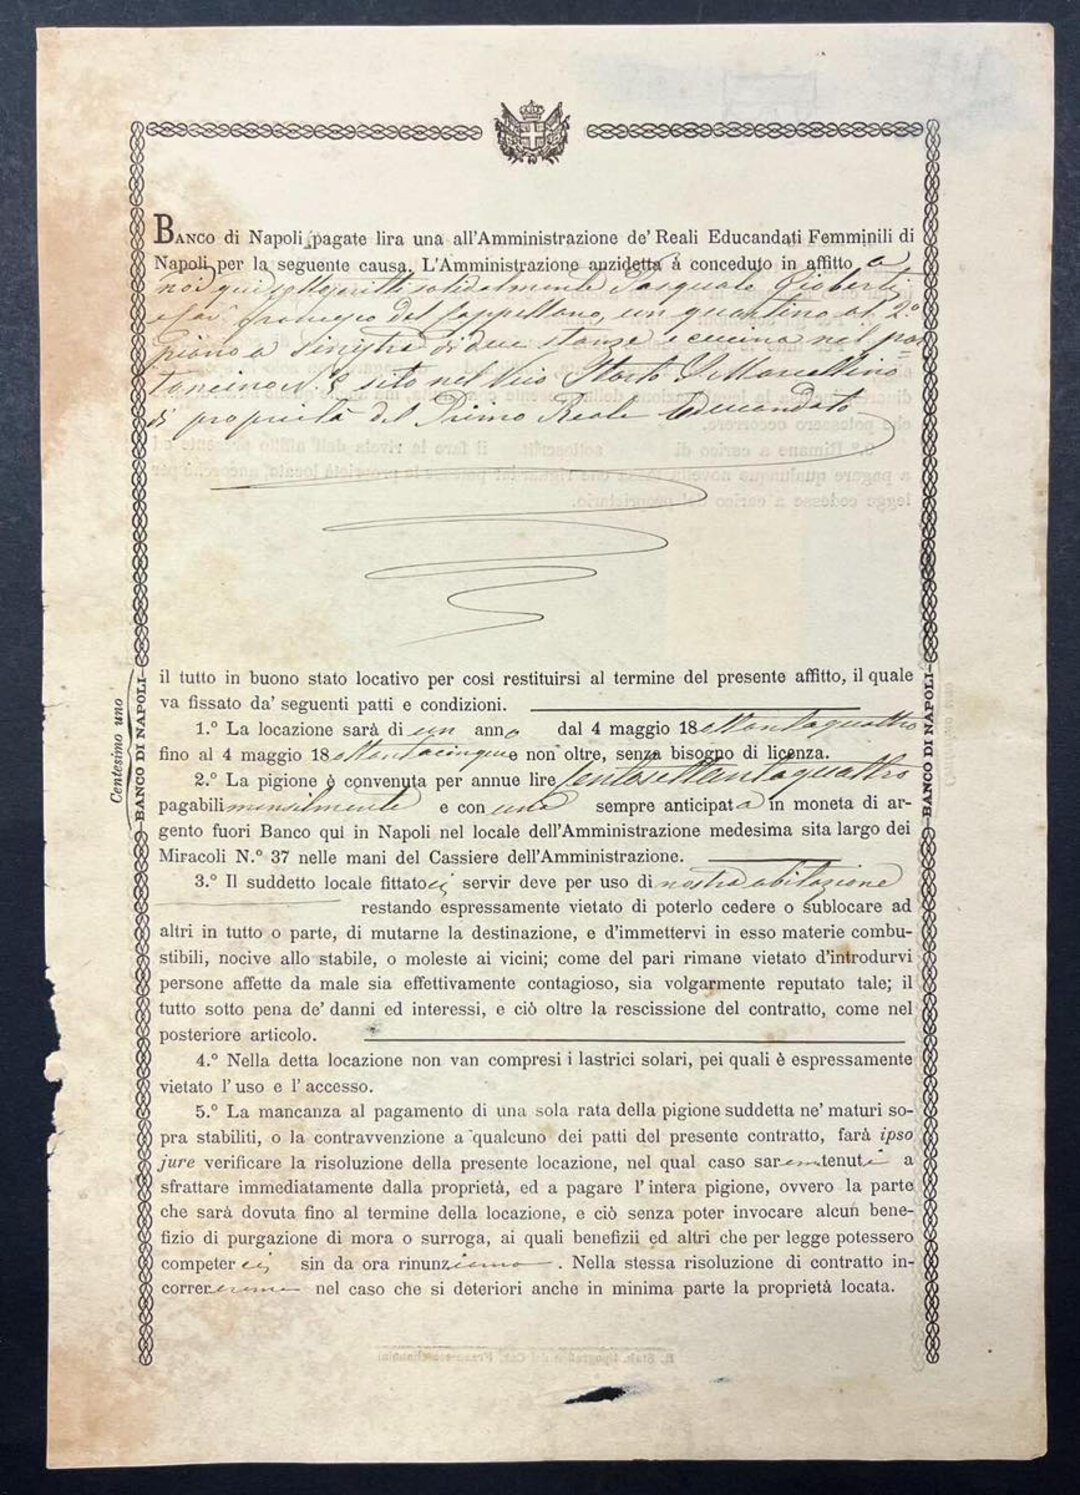 BANCO di Napoli pagate lira una all'Amministrazione de' Reali Educandati Femminili di
Napoli per la seguente causa. L'Amministrazione anzidetta à conceduto in affitto a
noi qui sottoscritti solidalmente Pasquale Gioberti
e Cav. del Cappellano, un quartino al 2°
piano a sinistra di due stanze e cucina nel por=
toncino N. sito nel Vico Marcellino
di proprietà del Primo Reale Educandato
il tutto in buono stato locativo per così restituirsi al termine del presente affitto, il quale
va fissato da' seguenti patti e condizioni.
1.° La locazione sarà di un anno dal 4 maggio 18ottantaquattro
fino al 4 maggio 18ottantacinque e non oltre, senza bisogno di licenza.
2.° La pigione è convenuta per annue lire centosettantaquattro
pagabili mensilmente e con una sempre anticipata in moneta di ar-
gento fuori Banco qui in Napoli nel locale dell'Amministrazione medesima sita largo dei
Miracoli N.° 37 nelle mani del Cassiere dell'Amministrazione.
3.° Il suddetto locale fittatoci servir deve per uso di nostra abitazione
restando espressamente vietato di poterlo cedere o sublocare ad
altri in tutto o parte, di mutarne la destinazione, e d'immettervi in esso materie combu-
stibili, nocive allo stabile, o moleste ai vicini; come del pari rimane vietato d'introdurvi
persone affette da male sia effettivamente contagioso, sia volgarmente reputato tale; il
tutto sotto pena de' danni ed interessi, e ciò oltre la rescissione del contratto, come nel
posteriore articolo.
4.° Nella detta locazione non van compresi i lastrici solari, pei quali è espressamente
vietato l'uso e l'accesso.
5.° La mancanza al pagamento di una sola rata della pigione suddetta ne' maturi so-
pra stabiliti, o la contravvenzione a qualcuno dei patti del presente contratto, farà ipso
jure verificare la risoluzione della presente locazione, nel qual caso saremo tenuti a
sfrattare immediatamente dalla proprietà, ed a pagare l'intera pigione, ovvero la parte
che sarà dovuta fino al termine della locazione, e ciò senza poter invocare alcun bene-
fizio di purgazione di mora o surroga, ai quali benefizii ed altri che per legge potessero
competerci sin da ora rinunziamo. Nella stessa risoluzione di contratto in-
correremo nel caso che si deteriori anche in minima parte la proprietà locata.
Centesimo uno
BANCO DI NAPOLI
BANCO DI NAPOLI